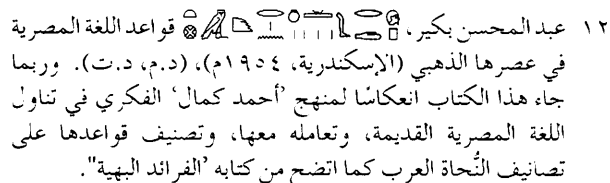 ١٢ عبد المحسن بكير، قواعد اللغة المصرية
في عصرها الذهبي (الإسكندرية، ١٩٥٤م)، (د.م، د.ت). وربما
جاء هذا الكتاب انعكاسًا لمنهج 'أحمد كمال' الفكري في تناول
اللغة المصرية القديمة، وتعامله معها، وتصنيف قواعدها على
تصانيف النُّحاة العرب كما اتضح من كتابه 'الفرائد البهية".